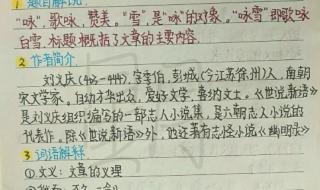 1 题目解说
"咏",歌咏,赞美。"雪",是"咏"的对象。"咏雪"即歌咏
白雪,标题概括了文章的主要内容。
2 作者简介
刘义庆(403-444),字季伯,彭城(今江苏徐州)人,南朝
宋文学家。自幼才华出众,爱好文学,喜纳文士。《世说新语》
是刘义庆组织编写的一部志人小说集,是六朝志人小说的
代表作。除《世说新语》外,他还著有志怪小说《幽明录》
3 词语解释
①文义:文章的义理